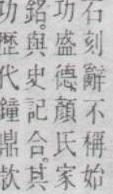 石刻辭不稱始
功盛德顏氏家
銘。與史記合。其
功歷代鐘鼎款